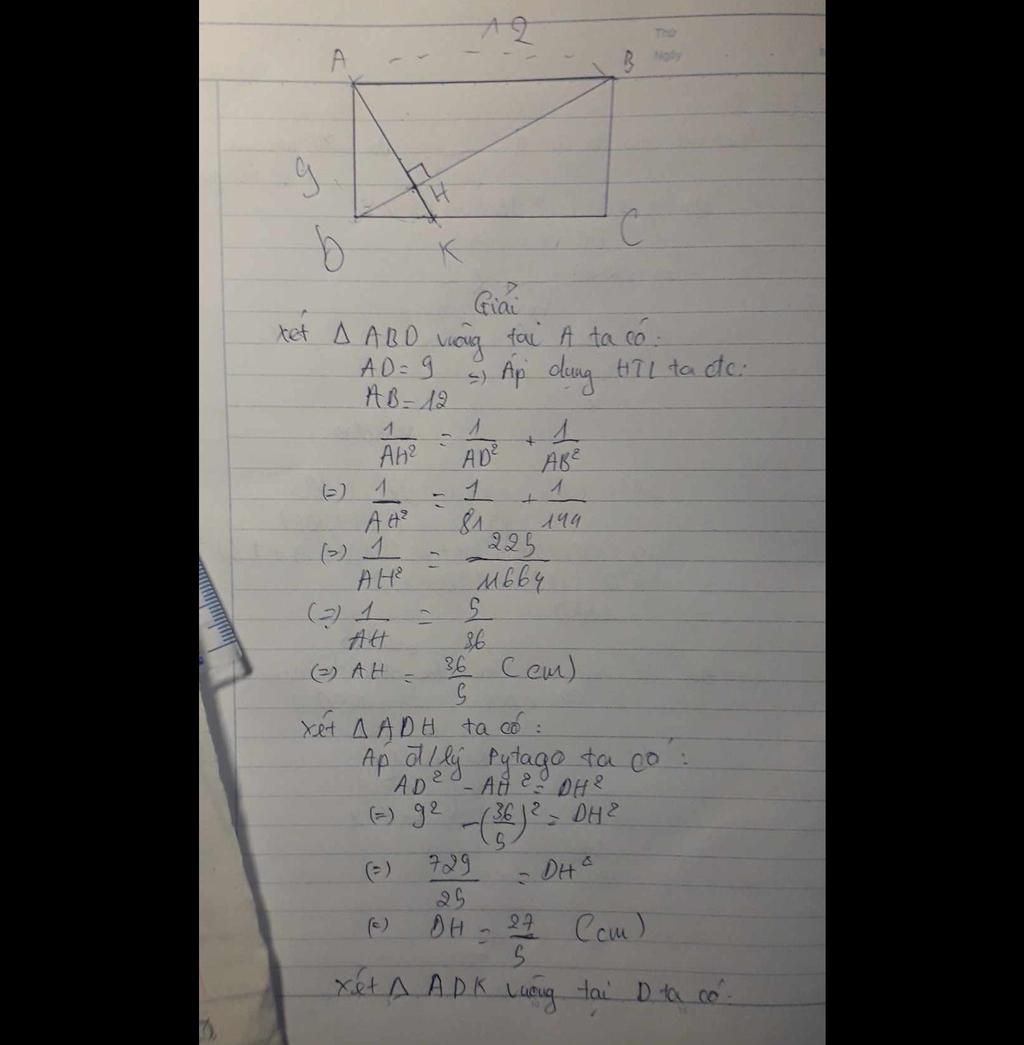 12
Thứ
Ngày
A B
9
H
D K C
Giải
Xét Δ ABD vuông tại A ta có:
AD = 9 => Áp dụng HTL ta đc:
AB = 12
1/AH² = 1/AD² + 1/AB²
(=) 1/AH² = 1/81 + 1/144
(=) 1/AH² = 225/11664
(=) 1/AH = 5/36
(=) AH = 36/5 (cm)
Xét Δ ADH ta có:
Áp đ/lý Pytago ta có:
AD² - AH² = DH²
(=) 9² - (36/5)² = DH²
(=) 729/25 = DH²
(=) DH = 27/5 (cm)
Xét Δ ADK vuông tại D ta có: